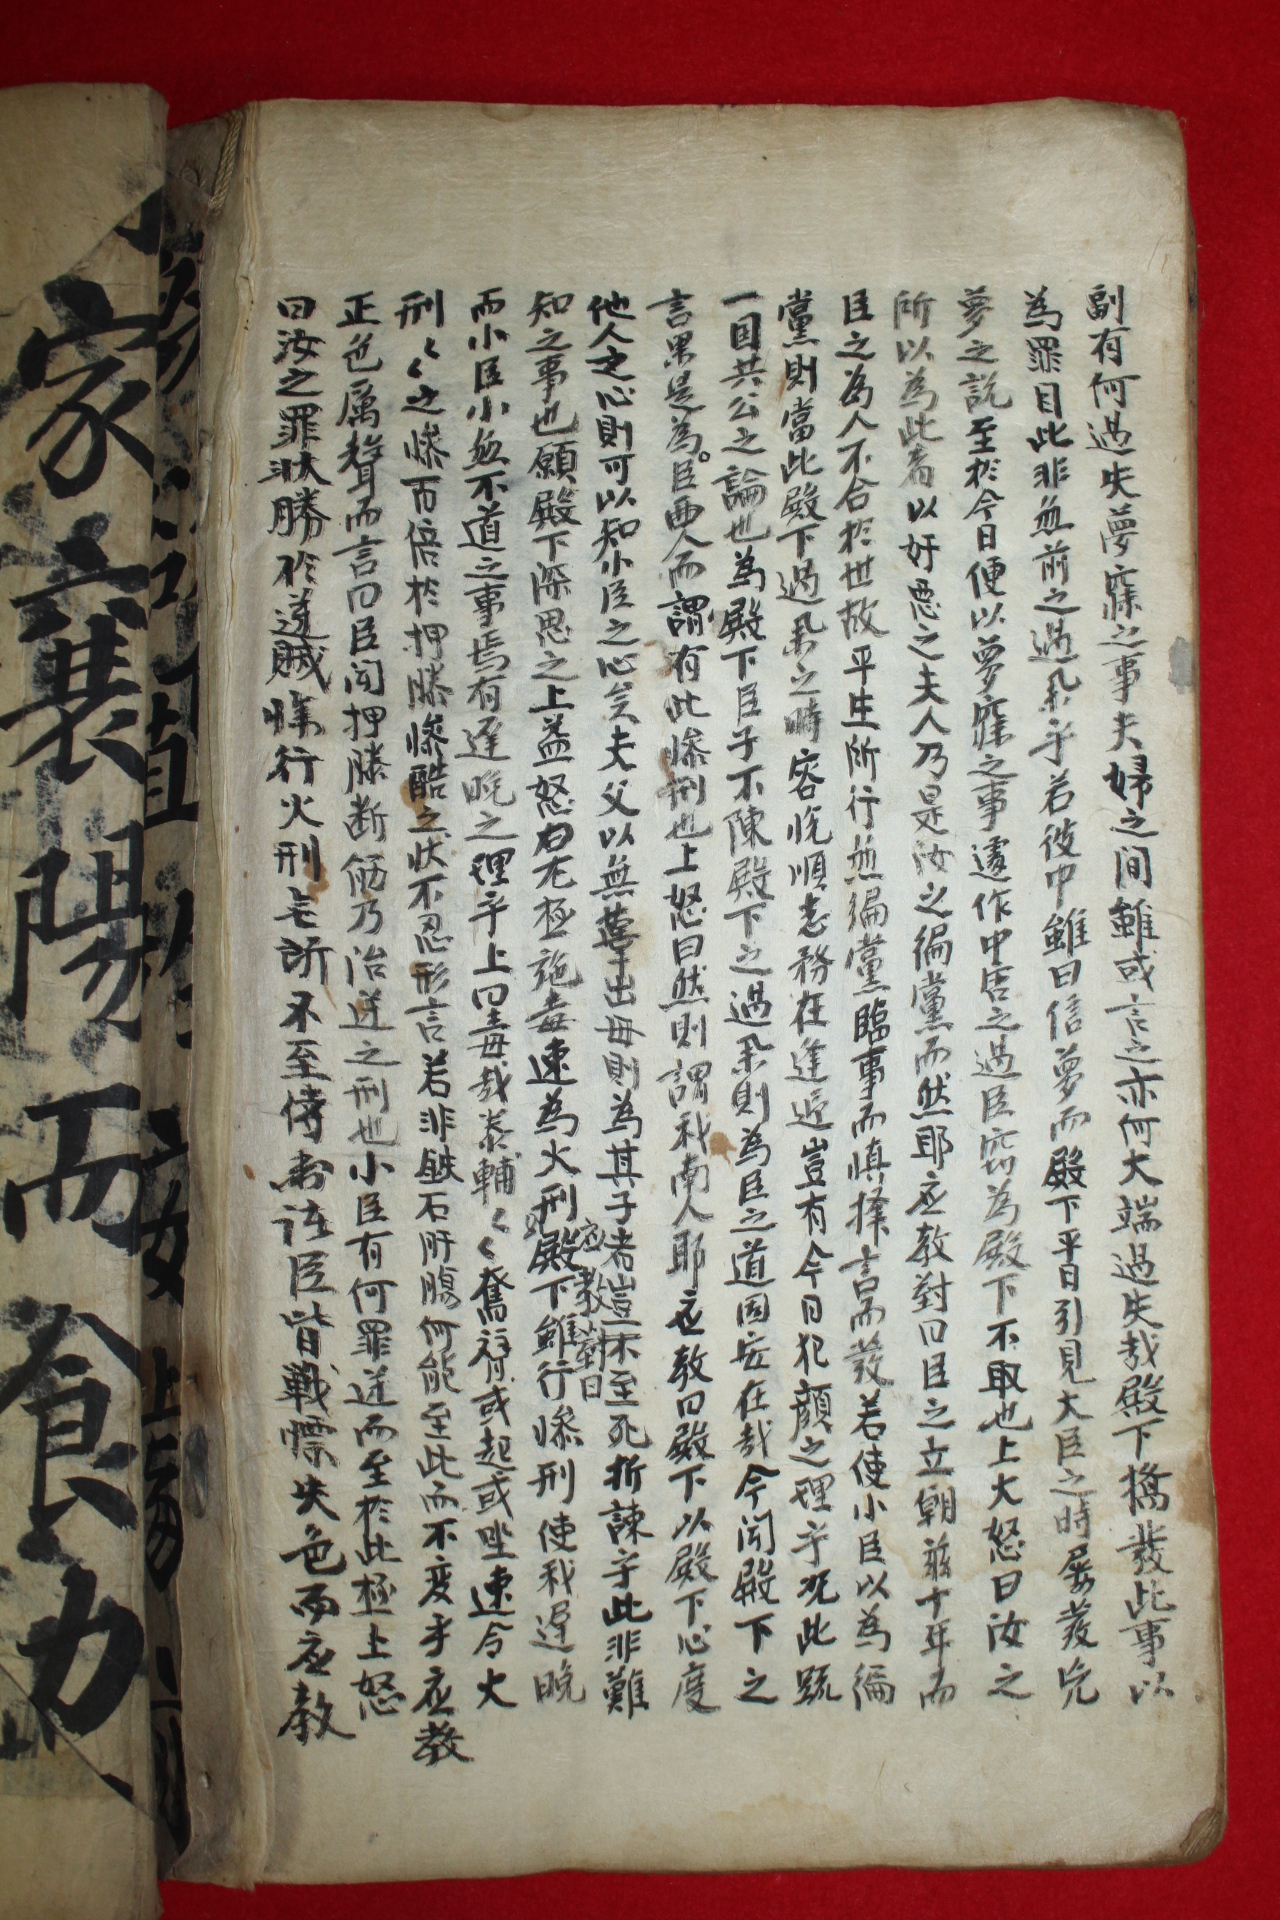 副有何過失夢寐之事夫婦之间雖或言之亦何大端過失哉殿下搆發此事以
為罪目此非無前之過乎若彼中雖曰信夢而殿下平日引見大臣之時屢發
夢之說至於今日便以夢寐之事遽作中宮之過臣窃為殿下不取也上大怒曰汝之
所以為此者以奸惡之夫人乃是汝之徧黨而然耶応教對曰臣之立朝茲十年而
臣之為人不合於世故平生所行無徧黨臨事而慎擇言而發若使小臣以為徧
黨則當此殿下過之時容悅順志務在逢迎豈有今日犯顔之理乎况此疏
一国共公之論也為殿下臣子不陳殿下之過則為臣之道固安在哉今闻殿下之
言果是為臣両人而謂有此慘也上怒曰然則謂我南人耶応教曰殿下以殿下心度
他人之心則可以知小臣之心矣夫父以無孽出母則為其子者豈不至死折諫乎此非難
知之事也願殿下深思之上益怒曰尤極施毒速為火刑応教對曰殿下雖行慘刑使我遅晚
而小臣小無不道之事焉有遅晚之理乎上曰毒哉泰輔〻〻奮臂或起或坐速令火
刑〻〻之慘百倍於押膝慘酷之状不忍形言若非鉄石肝膓何能至此而不变乎応教
正色厲聲而言曰臣闻押膝断筋乃治逆之刑也小臣有何罪逆而至於此極上怒
曰汝之罪状勝於逆賊行火刑無所不至侍諸臣皆戰慄失色而応教
家襄陽而食力